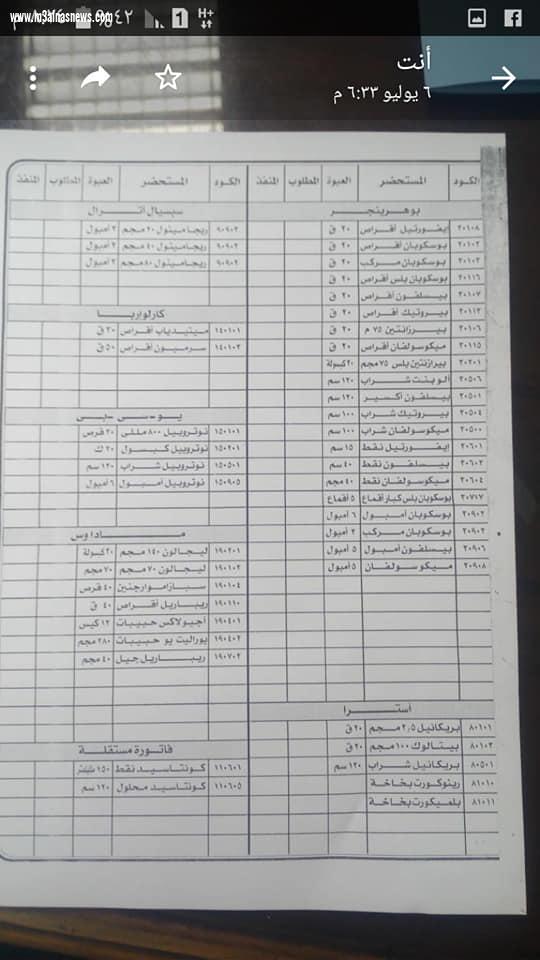 www.m3arnasnews.com
٩:٤٢
H+
أنت
٦ يوليو ٦:٣٣ م
الكود المستحضر العبوة المطلوب المنفذ
بوهرينجر
٢٠١٠٨ إيفورتيل أقراص ٢٠ ق
٢٠١٠٢ بوسكوبان أقراص ٢٠ ق
٢٠١٠٣ بوسكوبان مركب ٢٠ ق
٢٠١١٦ بوسكوبان بلس أقراص ٢٠ ق
٢٠١٠٧ بيسلفون أقراص ٢٠ ق
٢٠١١٣ بيروتيك أقراص ٢٠ ق
٢٠١٠٦ بيرزانتين ٧٥ م ٢٠ ق
٢٠١١٥ ميكوسولفان أقراص ٢٠ ق
٢٠٢٠١ بيرازنتين بلس ٧٥ مجم ٢٠ كبولة
٢٠٥٠٦ ألوبنت شراب ١٢٠ سم
٢٠٥٠١ بيسلفون أكسير ١٢٠ سم
٢٠٥٠٤ بيروتيك شراب ١٠٠ سم
٢٠٥٠٠ ميكوسولفان شراب ١٠٠ سم
٢٠٦٠١ إيفورتيل نقط ١٥ سم
٢٠٦٠٢ بيسلفون نقط ٤٠ سم
٢٠٦٠٤ ميكوسولفان نقط ٤٠ مجم
٢٠٧١٧ بوسكوبان بلس كبار أقماع ٥ أقماع
٢٠٩٠٢ بوسكوبان أمبول ٦ أمبول
٢٠٩٠٣ بوسكوبان مركب ٣ أمبول
٢٠٩٠٦ بيسلفون أمبول ٥ أمبول
٢٠٩٠٨ ميكوسولفان ٥ أمبول
استرا
٨٠١٠١ بريكانيل ٢,٥ مجم ٢٠ ق
٨٠١٠٣ بيتالوك ١٠٠ مجم ٢٠ ق
٨٠٥٠١ بريكانيل شراب ١٢٠ سم
٨١٠١٠ رينوكورت بخاخة
٨١٠١١ بلميكورت بخاخة
الكود المستحضر العبوة المطلوب المنفذ
سبسيال أترال
٩٠٩٠٢ ريجامينول ٢٠ مجم ٣ أمبول
٩٠٩٠٢ ريجامينول ٤٠ مجم ٣ أمبول
٩٠٩٠٢ ريجامينول ٨٠ مجم ٣ أمبول
كارلواربا
١٤٠١٠١ مينيدياب أقراص ٣٠ ق
١٤٠١٠٣ سرميون أقراص ٥٠ ق
يو-سى-بى
١٥٠١٠١ نوتروبيل ٨٠٠ مللى ٢٠ قرص
١٥٠٢٠١ نوتروبيل كبسول ٢٠ ك
١٥٠٥٠١ نوتروبيل شراب ١٢٠ سم
١٥٠٩٠٥ نوتروبيل أمبول ٦ أمبول
ماداوس
١٩٠٢٠١ ليجالون ١٤٠ مجم ٢٠ كبولة
١٩٠١٠٢ ليجالون ٧٠ مجم ٧٠ مجم
١٩٠١٠٤ سبازموارجنين ٤٠ قرص
١٩٠١١٠ ريباريل أقراص ٤٠ ق
١٩٠٤٠١ أجيولاكس حبيبات ١٢ كيس
١٩٠٤٠٢ يوراليت يو حبيبات ٢٨٠ مجم
١٩٠٧٠٢ ريباريل جيل ٤٠ مجم
فاتورة مستقلة
١١٠٦٠١ كونتاسيد نقط
١١٠٦٠٥ كونتاسيد محلول ١٢٠ سم